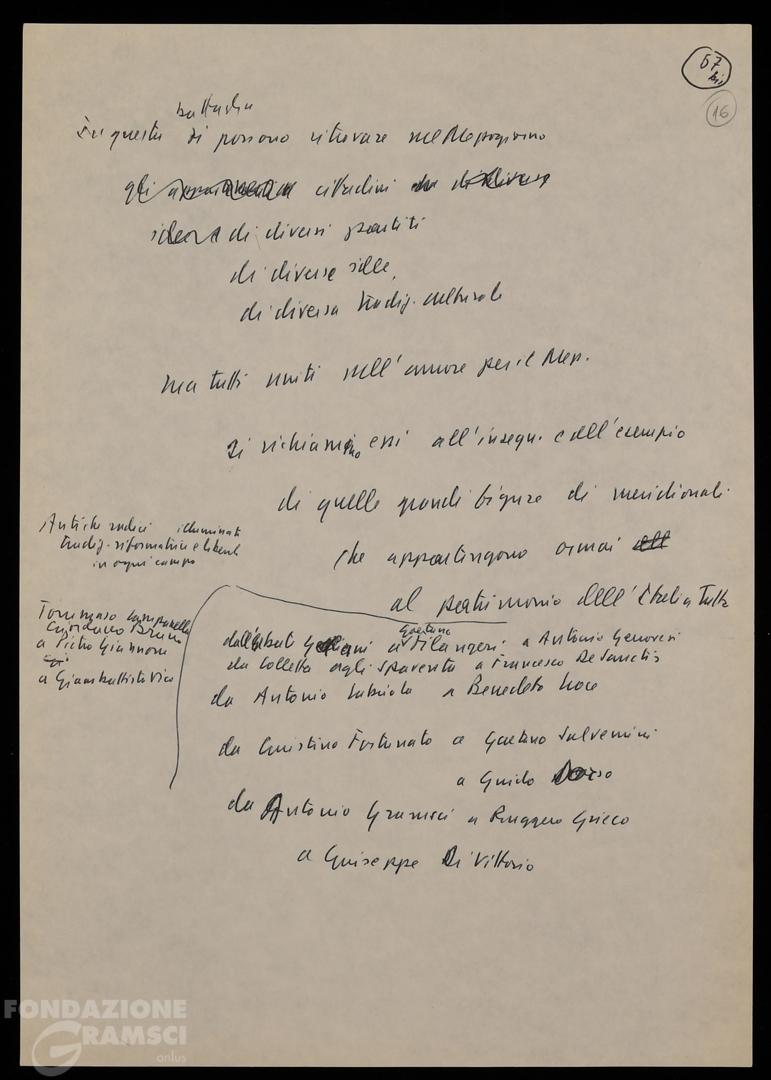 67
bis
16
battaglia
In questa si possono ritrovare nel Mezzogiorno
gli cittadini
di diversi partiti
di diverse
di diversa tradiz. culturale
ma tutti uniti nell'amore per il Mez.
Si richiamino essi all'insegn. e all'esempio
di quelle grandi figure di meridionali
che appartengono ormai
al patrimonio dell'Italia tutta
Antiche radici illuminate
tradiz. riformatrice e liberale
in ogni campo
Tommaso Campanella
Giordano Bruno
a Pietro Giannone
a Giambattista Vico
Gaetano
dall'abate Galiani a Filangieri a Antonio Genovesi
da Colletta agli Spaventa a Francesco De Sanctis
da Antonio Labriola a Benedetto Croce
da Giustino Fortunato a Gaetano Salvemini
a Guido Dorso
da Antonio Gramsci a Ruggero Grieco
a Giuseppe Di Vittorio
FONDAZIONE
GRAMSCI
onlus